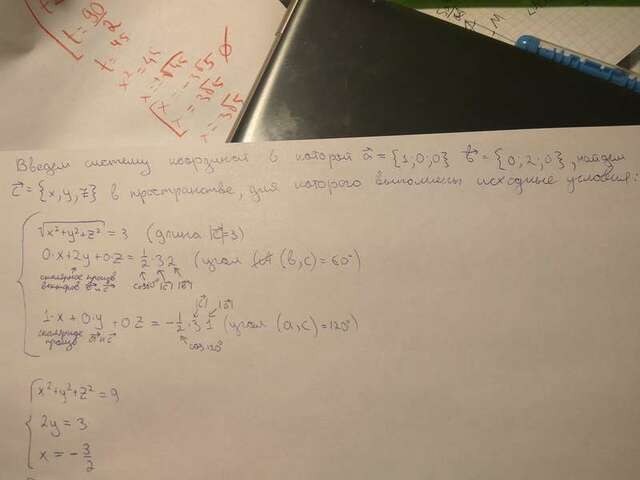 t = 90/2
t = 45
x² = 45
x = 3√5
x = 3√5
Введем систему координат в которой a⃗ = {1;0;0} b⃗ = {0;2;0}, найдем
c⃗ = {x,y,z} в пространстве, для которого выполнены исходные условия:
√x²+y²+z² = 3 (длина |c⃗|=3)
0·x+2y+0·z = 1/2·3·2 (угол (b,c) = 60°)
скалярное произв cos60° |c⃗| |b⃗|
векторов b⃗ и c⃗
|c⃗| |a⃗|
1·x+0·y+0z = -1/2·3·1 (угол (a,c) = 120°)
скалярное cos120°
произв a⃗ и c⃗
x²+y²+z² = 9
2y = 3
x = -3/2